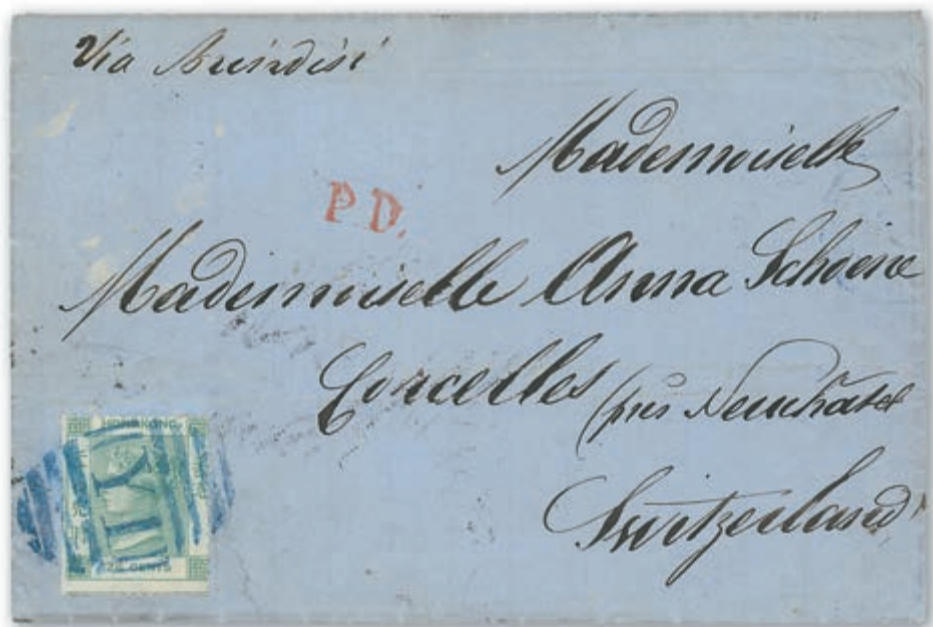 Via Brindisi
Mademoiselle
P.D.
Mademoiselle Anna Schoene
Corcelles (près Neuchatel
Switzerland
HONG KONG
Y1
CENTS